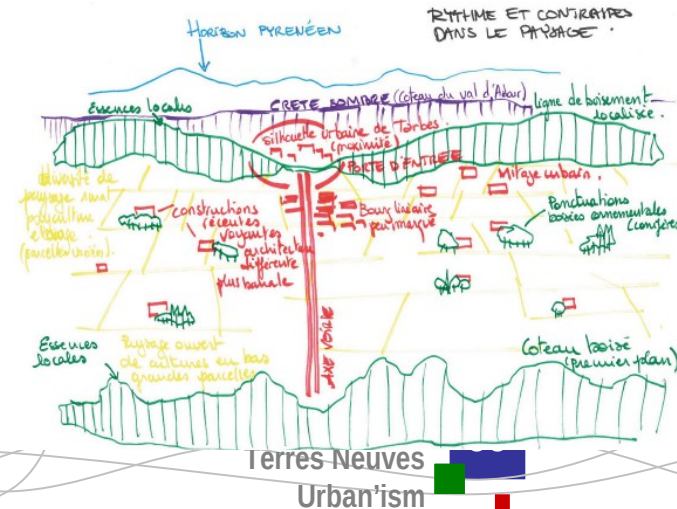 RYTHME ET CONTRASTES
DANS LE PAYSAGE.
HORIZON PYRENÉEN
Essences locales
CRETE SOMBRE (coteau du val d'Adour)
ligne de boisement
localisée.
Silhouette urbaine de Tarbes.
(proximité)
PORTE D'ENTREE
Mitage urbain.
diversité de
paysage rural
polyculture
(parcelles variées).
constructions
récentes
voyantes
architecture
différente
plus banale
Bourg linéaire
peu marqué
Ponctuations
boisées ornementales
(conifères
AXE VOIRIE
Essences
locales
Paysage ouvert
de cultures en bas
grandes parcelles
Coteau boisé
(premier plan)
Terres Neuves
Urban'ism